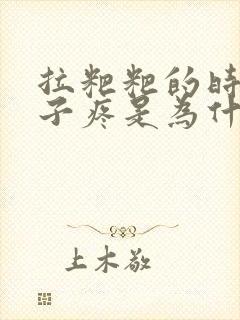 拉粑粑的时
子疼是为什
上木敬